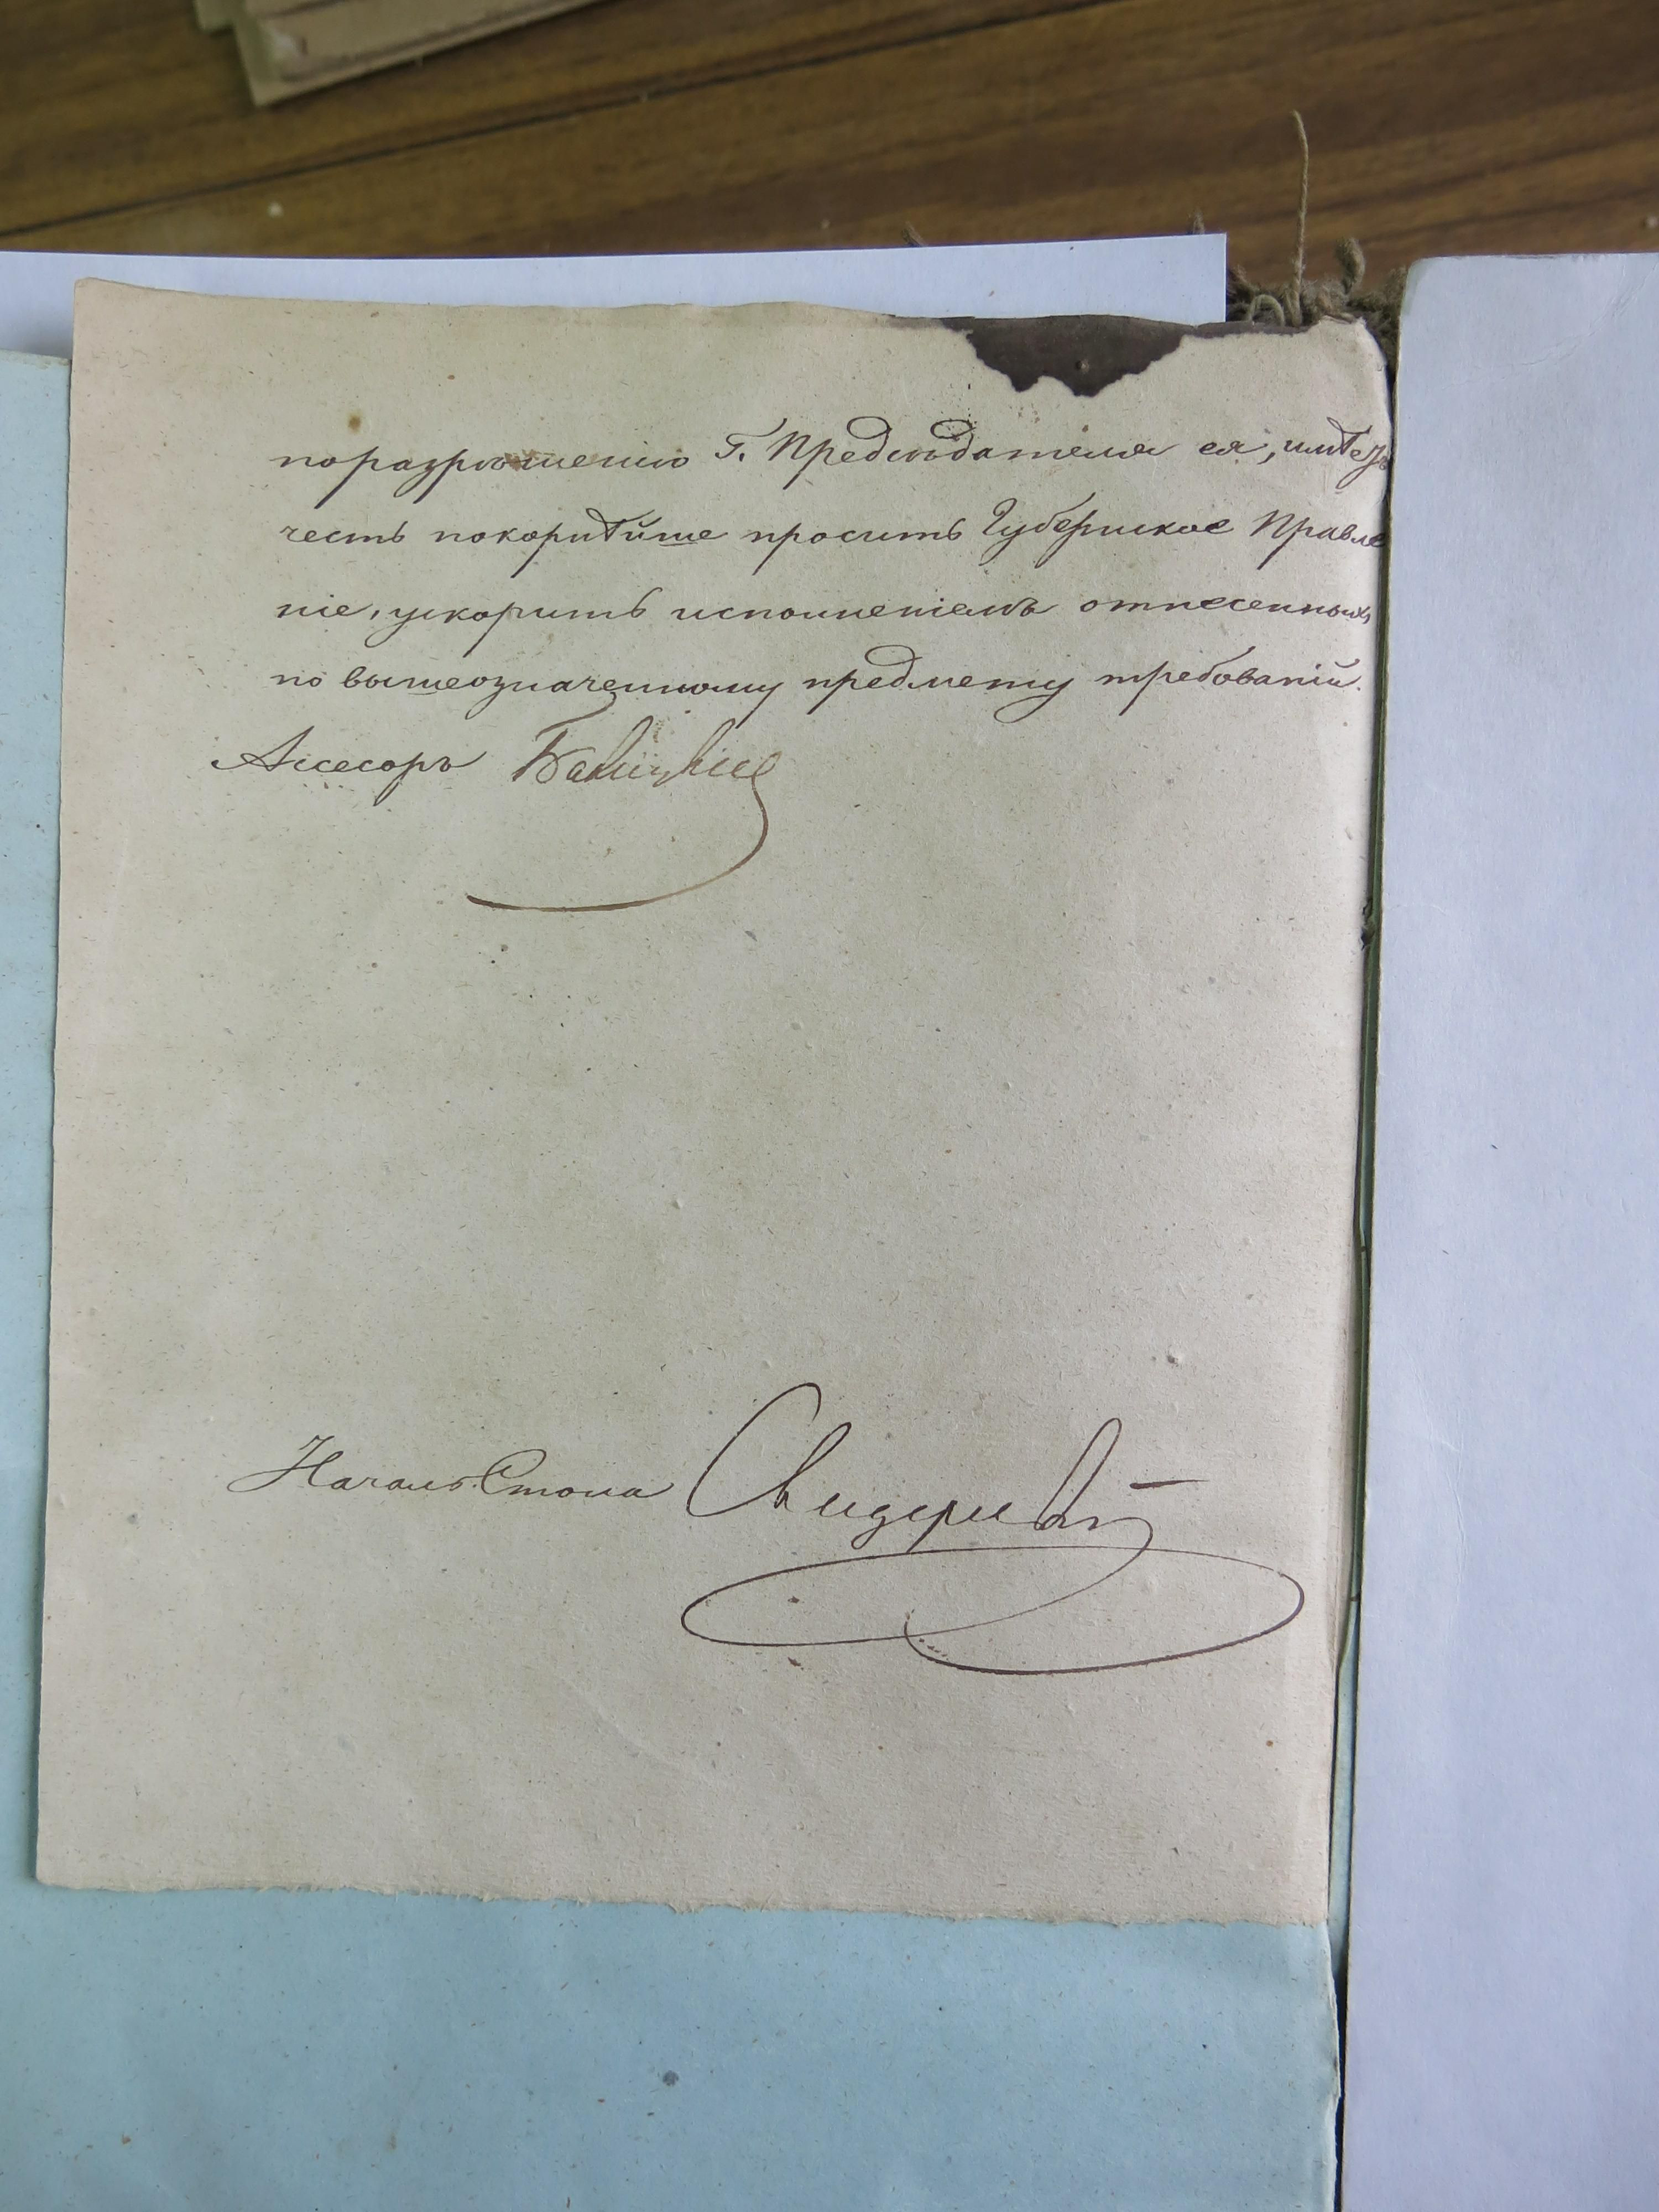 по разрѣшенію Г. Предсѣдателя ея, имѣетъ
честь покорнѣйше просить Губернское Правле
ніе, ускорить исполненіемъ отнесенныхъ
по вышеозначенному предмету требованій.
Ассесоръ
Началь. Стола